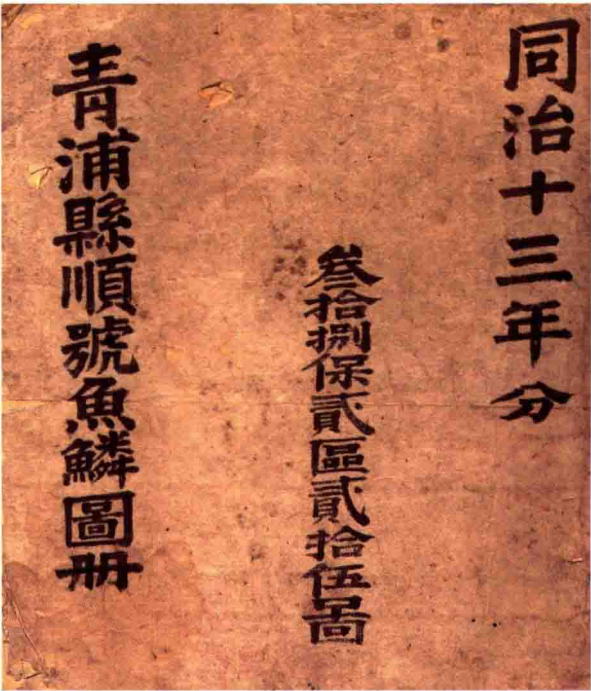 同治十三年分
叁拾捌保貳區貳拾伍啚
青浦縣順號魚鱗圖册